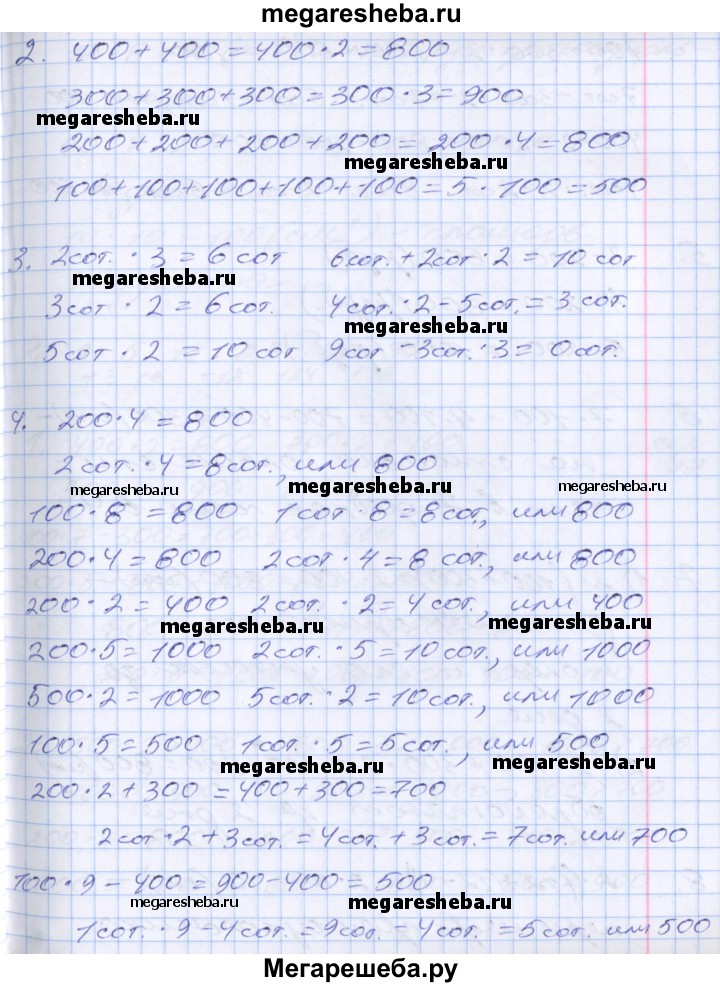 megaresheba.ru
2. 400+400=400·2=800
300+300+300=300·3=900
megaresheba.ru
200+200+200+200=200·4=800
megaresheba.ru
100+100+100+100+100=5·100=500
3. 2сот.·3=6сот 6сот.+2сот·2=10 сот
megaresheba.ru
3сот·2=6сот. 4сот.·2-5сот.=3 сот.
megaresheba.ru
5сот·2=10 сот 9сот-3сот.·3=0сот.
4. 200·4=800
2 сот.·4=8сот., или 800
megaresheba.ru megaresheba.ru megaresheba.ru
100·8=800 1сот·8=8сот., или 800
200·4=800 2сот·4=8 сот., или 800
200·2=400 2сот.·2=4сот., или 400
megaresheba.ru megaresheba.ru
200·5=1000 2сот.·5=10сот., или 1000
500·2=1000 5сот.·2=10сот., или 1000
100·5=500 1сот.·5=5сот., или 500
megaresheba.ru megaresheba.ru
200·2+300=400+300=700
2сот·2+3сот.=4сот.+3сот.=7сот. или 700
100·9-400=900-400=500
megaresheba.ru megaresheba.ru
1сот.·9-4сот.=9сот.-4сот.=5сот. или 500
Мегарешеба.ру